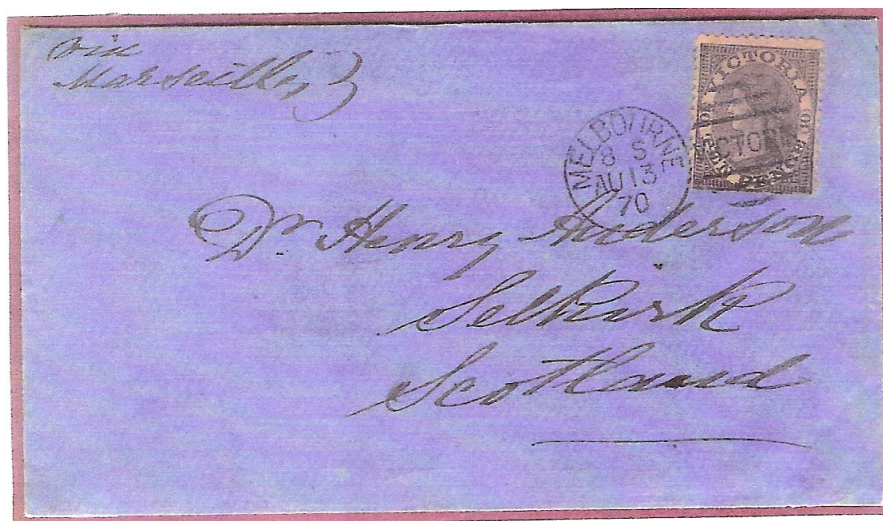 via
Marseilles
VICTORIA
10
10
TEN PENCE
CTOR
MELBOURNE
8 S
AU 13
70
Dr Henry Anderson
Selkirk
Scotland